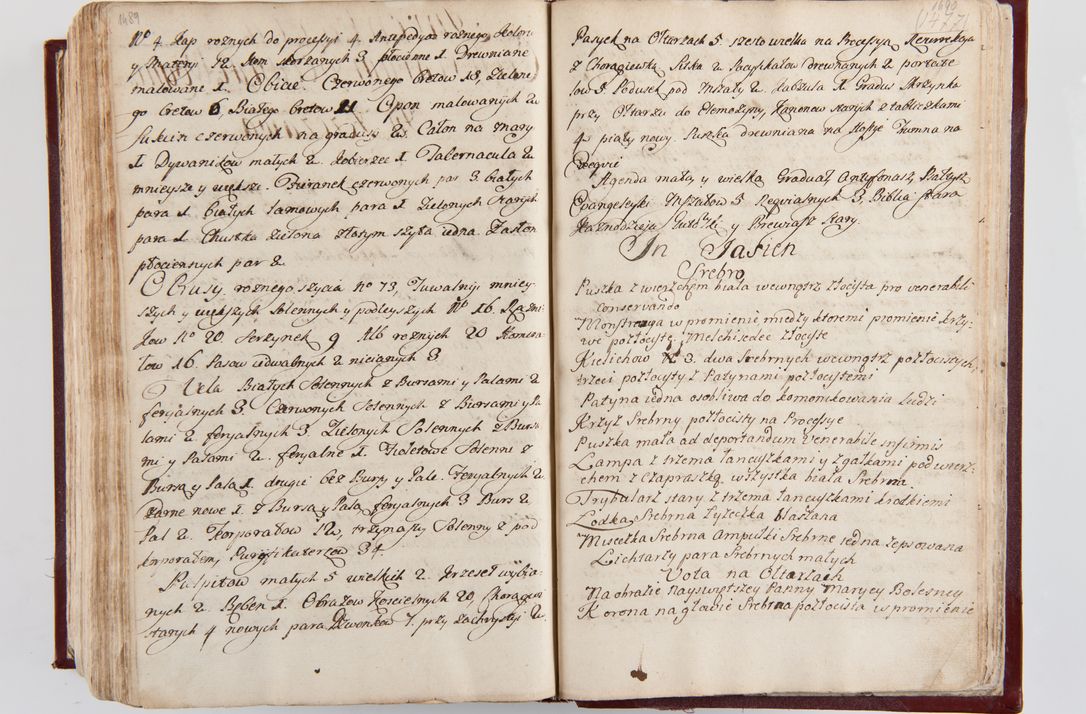 1489
Nº 4. Kap roznych do processyi 4. Antepedyow roznego Koloru
y Materyi 12. Mom skorzanych 3 płocienne 1. Drewniane
malowane 1. Obicie Czerwonego Bretow 18, Zielone-
go bretow 6 Białego bretow 11 Opon malowanych 2
Sukien czerwonych na gradusz 2. Całon na mary
1. Dywanikow małych 2. Kobierzec 1. Tabernacula 2
mnieysze y większe. Buranek czerwonych par 3. białych
para 1. białych lamowych para 1. Zielonych
para 1. Chustka zielona złotym szyta iedna. Zasłon
płociennych par 2
Obrusy roznego szycia Nº 73, Tuwalnij mniey-
szych y większych Solennych y podleyszych Nº 16. Ręczni-
kow Nº 20 Serzynek 9 Alb roznych 20 Humera-
łow 16. Pasow iedwabnych 2 nicianych 3
Vela Białych Solennych z Bursami y Palami 2
feryalnych 3. Czerwonych Solennych z Bursami y Pa-
lami 2. feryalnych 3. Zielonych Solennych z Bursa-
mi y Palami 2. feryalne 1. Fioletowe Solenne z
Bursą y Palą 1. drugie bez Bursy y Pale. Feryalnych 2.
Czarne nowe 1. z Bursą y Palą feryalnych 3 Burs 2
Pal 2. Korporałow 12, trzynasty Solenny z pod
korporałem, Puryfikaterzow 34
Pulpitow małych 5 wielkich 2. Krzeseł wybija-
nych 2. Bęben 1. Obrazow Koscielnych 20, Choragwi
starych 4 nowych para Dzwonkow 7. przy zachrystyi 2.
1490
Pasyek na Ołtarzach 5. szesto wielka na Processyą Rezurekcya
z Chorągiewką Filska 2. Pacyfikałow drewnianych 2 portate-
low 5 Poduszek pod Mszały 2. Kabzula 1. Gradus Skrzynka
przy Ołtarzu do Jłemozyny, Kanonow starych z tabliczkami
4. piąty nowy. Puszka drewniana na Hostye Trumna na
Requie
Agenda mała y wielka Graduał Antyfonarz Psałtysz
Ewangeliyki Mszałow 5 Requialnych 3, Biblia stara
Kaznodzieja y Brewiarz stary.
In Jasien
Srebro
Puszka z wierzchem biała wewnątrz złocista pro venerabili
conservando
Monstrancya w promienie między ktoremi promienie krzy-
we pozłocyste, Melchisedec złocysty
Kielichow Nº 3. dwa Srebrnych wewnątrz pozłociscych,
trzeci pozłocysty z Patynami pozłocystemi
Patyna iedna osobliwa do komonikowania ludzi
Krzyz Srebrny pozłocisty na Processye
Puszka mała ad deportandum Venerabile infirmis
Lampa z trzema łancuszkami y z gałkami pod wierz-
chem z czapraszką wszystka biała Srebrna
Trybularz stary z trzema łancuszkami krotkiemi
Łodka Srebrna Łyżeczka blaszana
Miseczka Srebrna Ampułki Srebrne iedna zepsowana
Lichtarzy para Srebrnych małych
Vota na Ołtarzach
Na obrazie Nayswiętszey Panny Maryey Bolesney
Korona na głowie Srebrna pozłocista w promienie